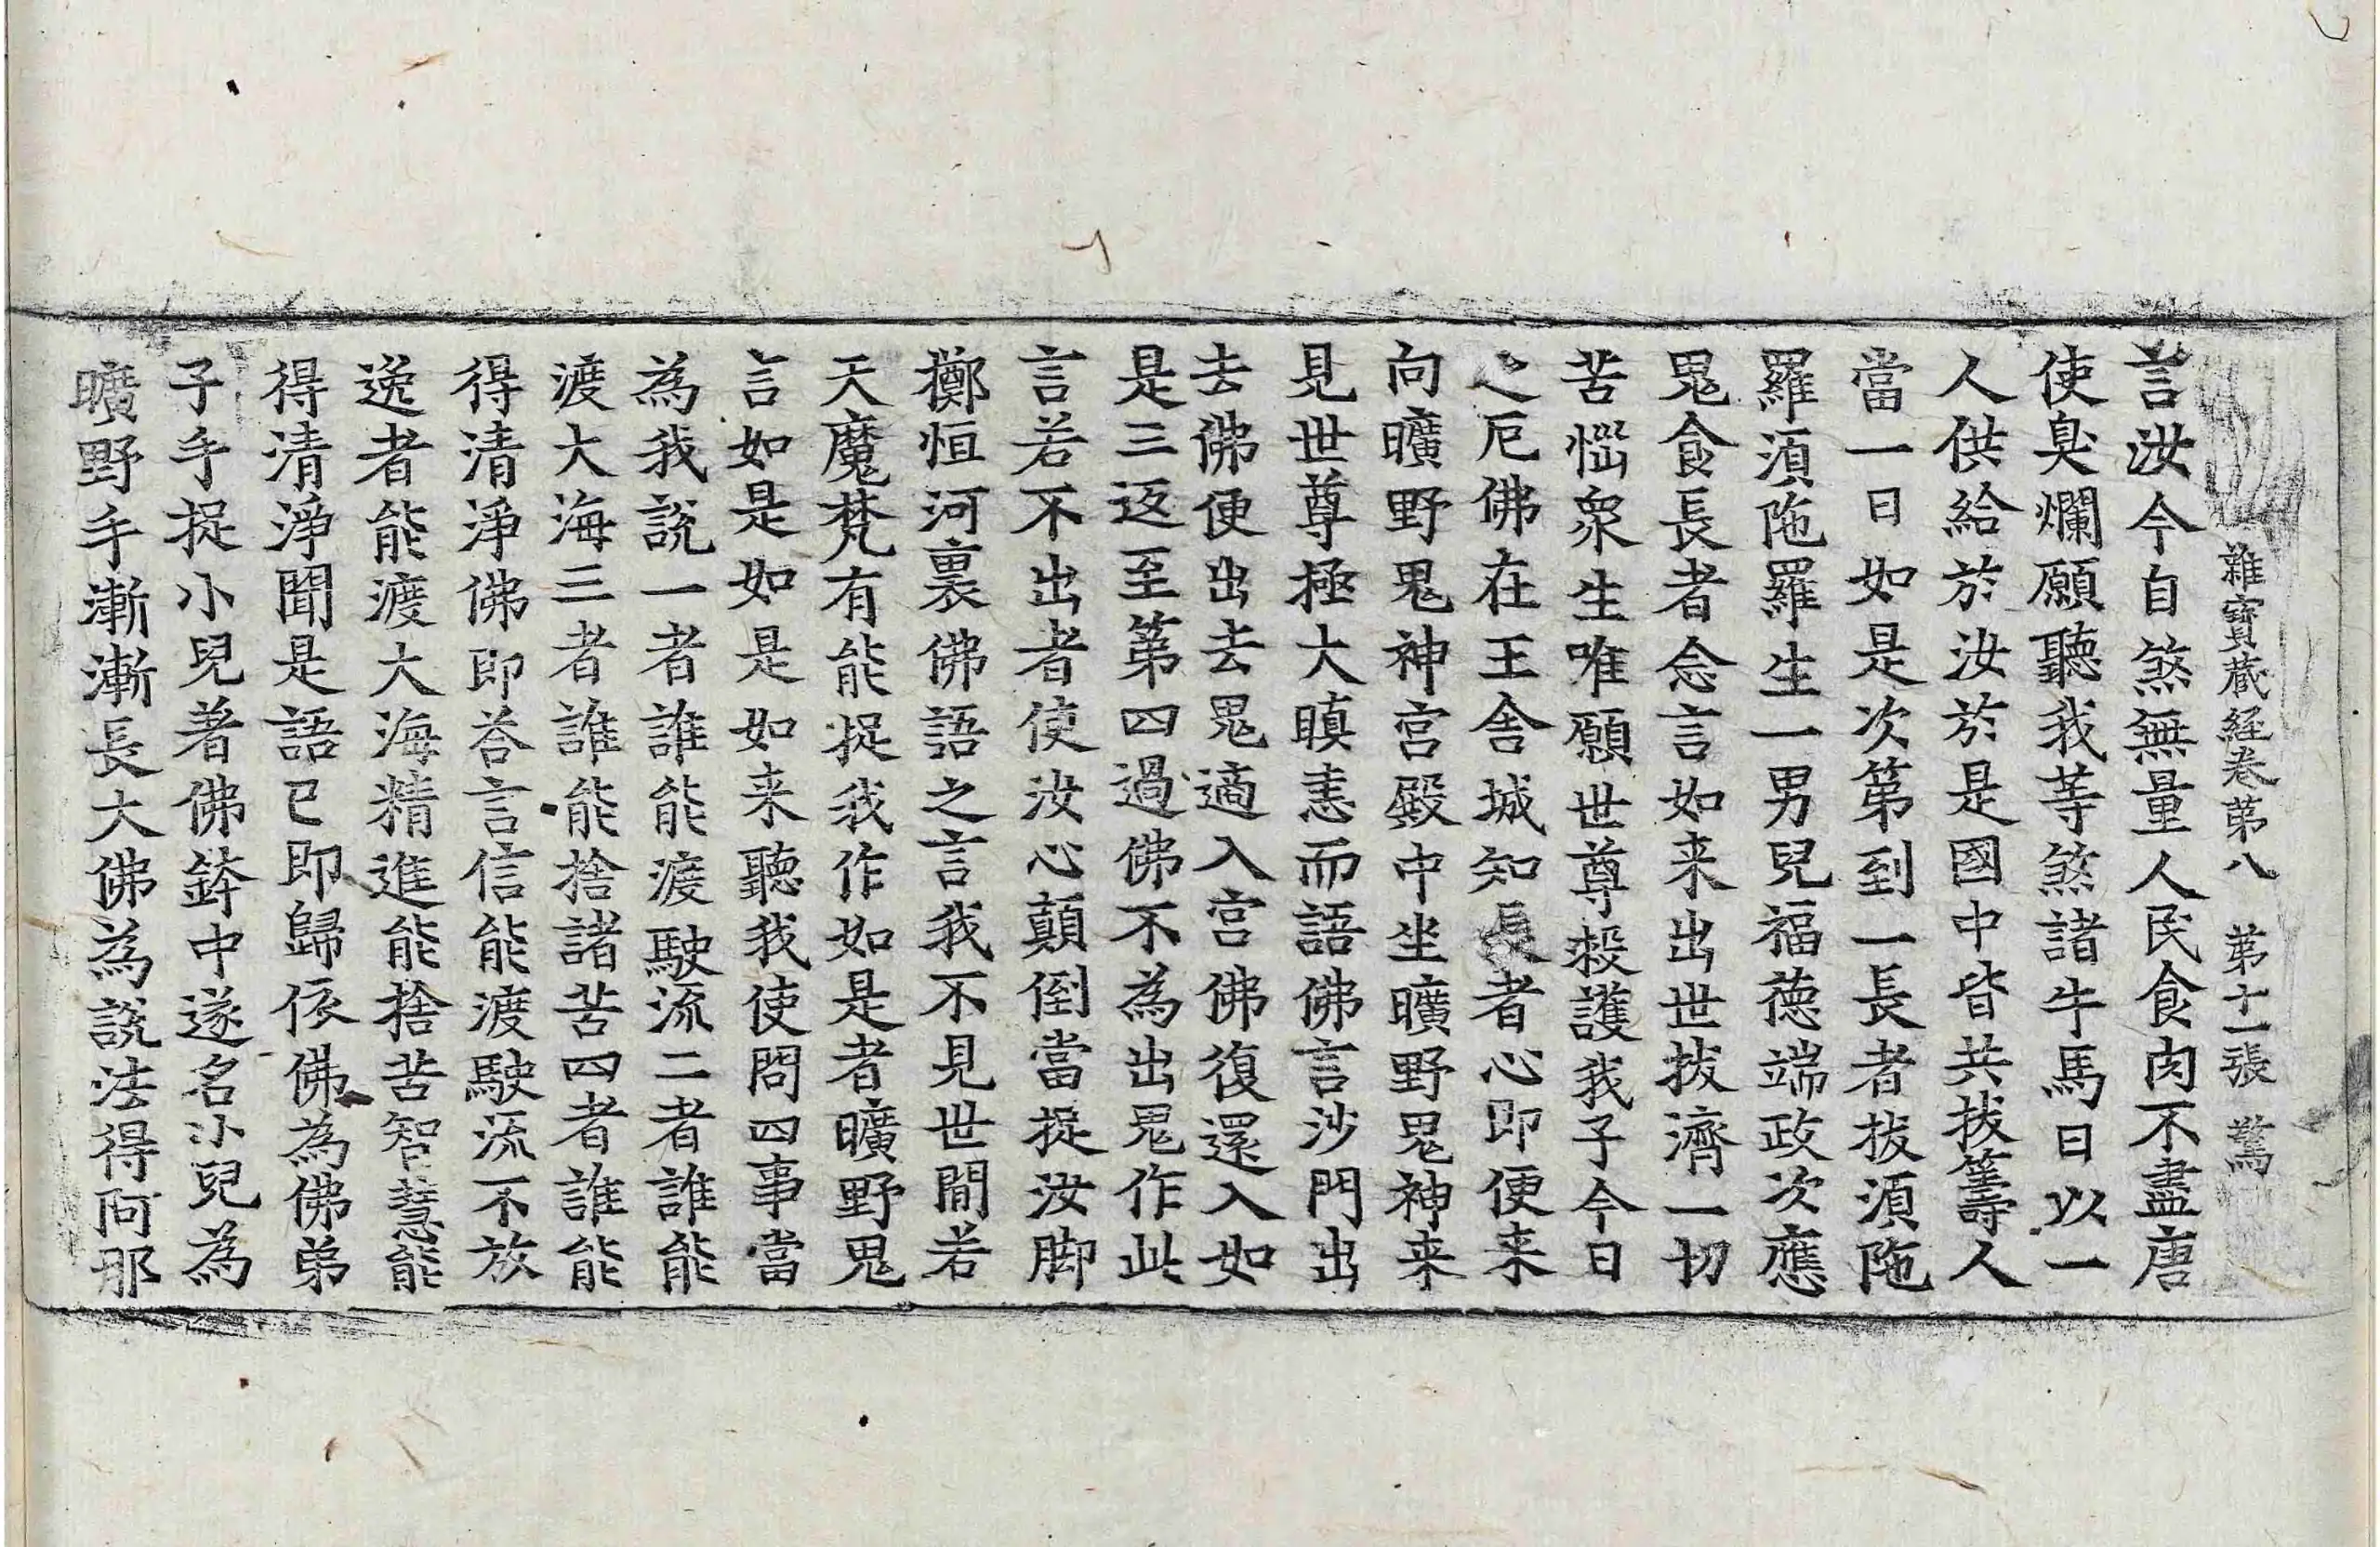 雜寶蔵経卷苐八　苐十一張　驚
言汝今自煞無量人民食肉不盡唐
使臭爛願聽我等煞諸牛馬日以一
人供給於汝於是國中皆共拔籌人
當一日如是次第到一長者拔湏陁
羅湏陁羅生一男兒福德端政次應
鬼食長者念言如来出世拔濟一切
苦惱衆生唯願世尊救護我子今日
之厄佛在王舍城知長者心即便来
向曠野鬼神宫殿中坐曠野鬼神来
見世尊極大瞋恚而語佛言沙門出
去佛便出去鬼適入宫佛復還入如
是三返至第四過佛不為出鬼作此
言若不出者使汝心顛倒當捉汝脚
擲恒河裏佛語之言我不見世間若
天魔梵有能捉我作如是者曠野鬼
言如是如是如来聽我使問四事當
為我說一者誰能渡駛流二者誰能
渡大海三者誰能捨諸苦四者誰能
得清淨佛即荅言信能渡駛流不放
逸者能渡大海精進能捨苦智慧能
得清淨聞是語已即歸依佛為佛弟
子手捉小兒著佛鉢中遂名小兒為
曠野手漸漸長大佛為說法得阿那